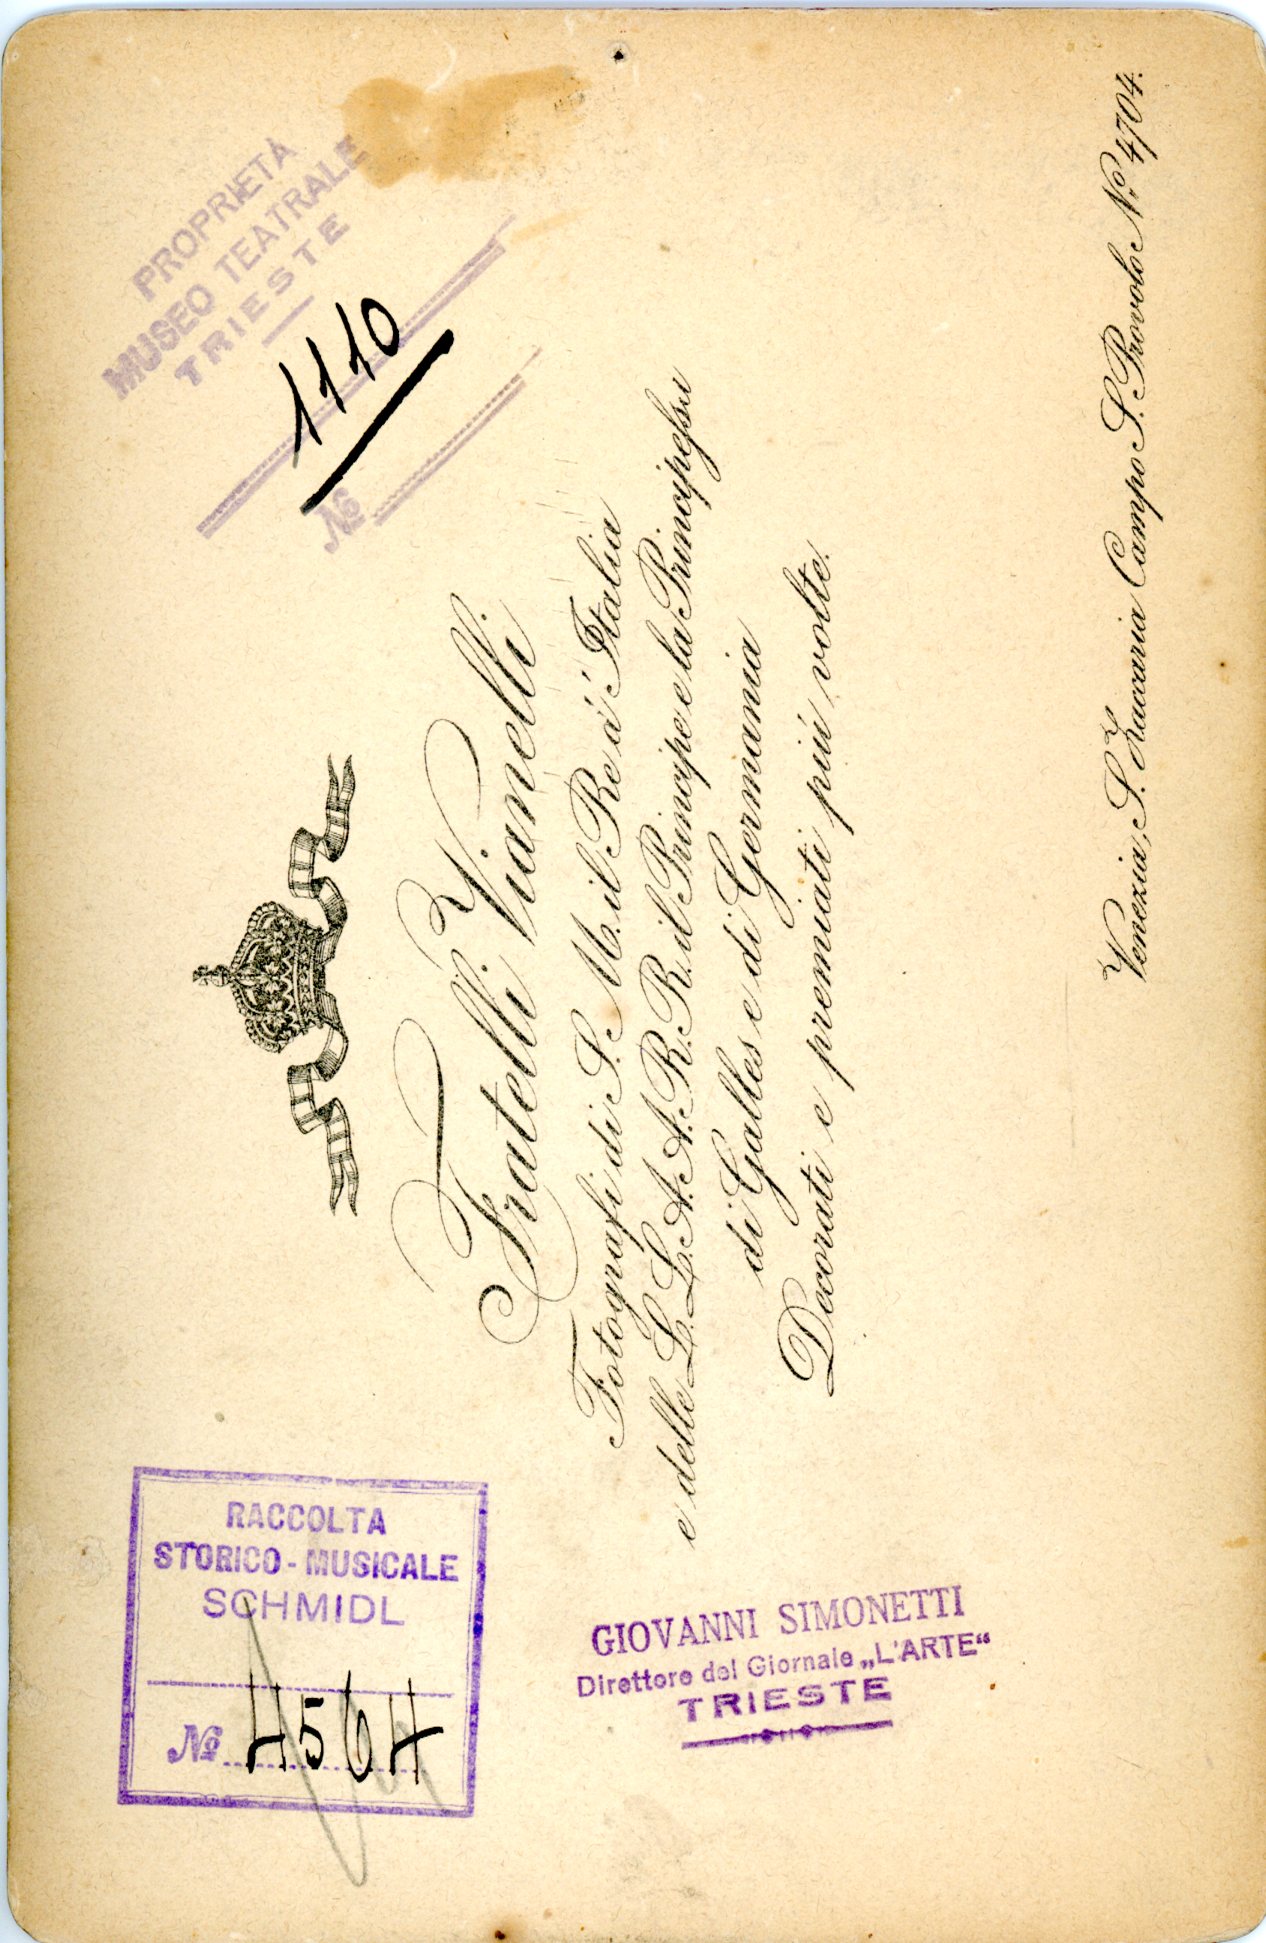 PROPRIETÀ
MUSEO TEATRALE
TRIESTE
1110
No
Fratelli Vianelli
Fotografi di S. M. il Re d'Italia
e delle L.L.A.A.R.R. il Principe e la Principessa
di Galles e di Germania
Decorati e premiati più volte.
Venezia, S. Zaccaria Campo S. Provolo No. 4704.
RACCOLTA
STORICO-MUSICALE
SCHMIDL
No 4564
GIOVANNI SIMONETTI
Direttore del Giornale „L'ARTE“
TRIESTE